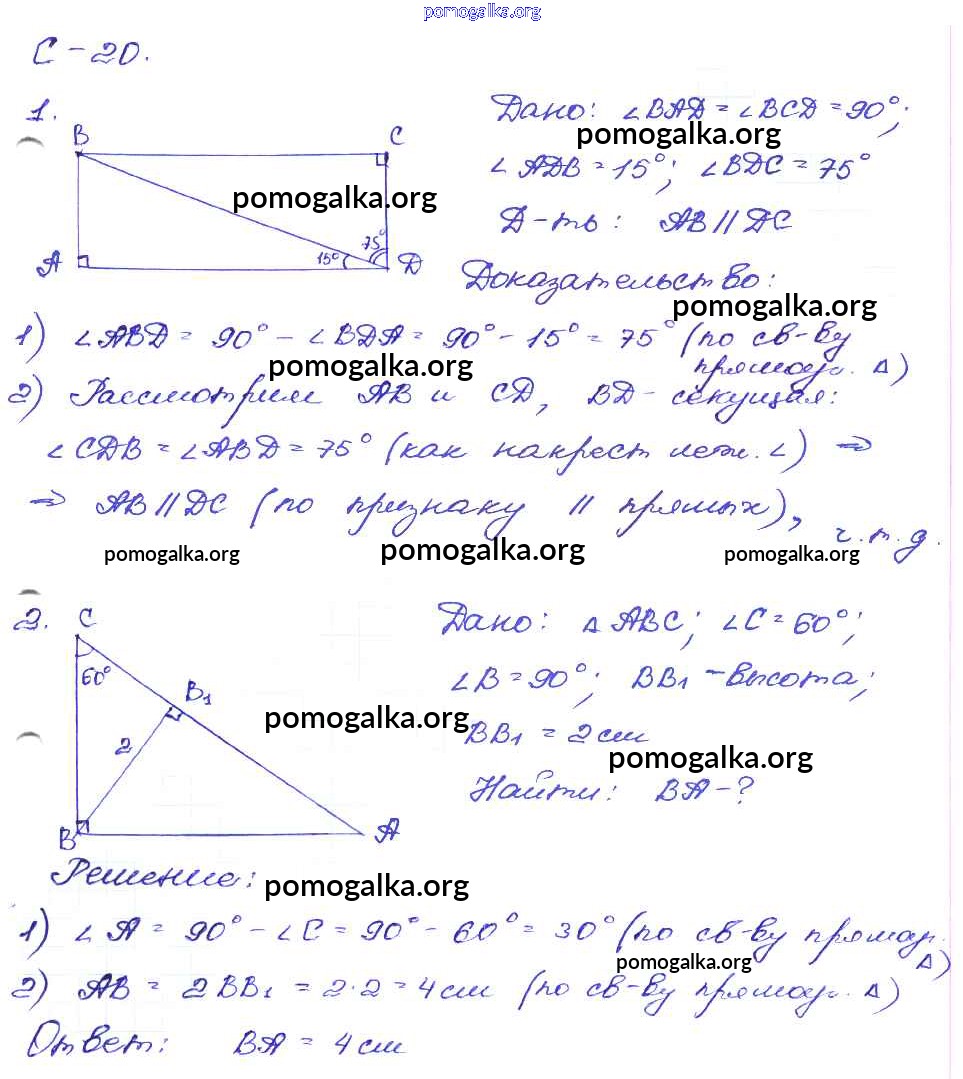 pomogalka.org
С-20.
1.
B
C
A
D
15°
75°
Дано: ∠BAD = ∠BCD = 90°;
pomogalka.org
∠ADB = 15°; ∠BDC = 75°
pomogalka.org
Д-ть: AB // DC
Доказательство:
pomogalka.org
1) ∠ABD = 90° - ∠BDA = 90° - 15° = 75° (по св-ву
прямоуг. Δ)
pomogalka.org
2) Рассмотрим AB и CD, BD - секущая:
∠CDB = ∠ABD = 75° (как накрест леж. ∠) ⇒
⇒ AB // DC (по признаку // прямых),
ч.т.д.
pomogalka.org pomogalka.org pomogalka.org
2.
C
60°
B1
2
B
A
Дано: Δ ABC; ∠C = 60°;
∠B = 90°; BB1 - высота;
pomogalka.org
BB1 = 2 см
pomogalka.org
Найти: BA - ?
Решение:
pomogalka.org
1) ∠A = 90° - ∠C = 90° - 60° = 30° (по св-ву прямоуг.
Δ)
pomogalka.org
2) AB = 2BB1 = 2·2 = 4 см (по св-ву прямоуг. Δ)
Ответ: BA = 4 см